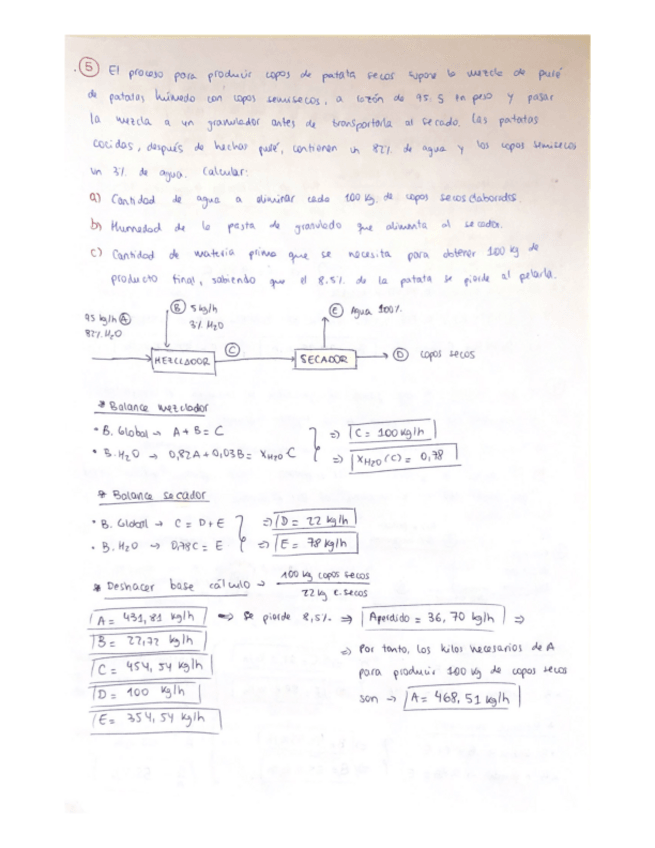 5 El proceso para producir copos de patata secos supone la mezcla de puré
de patatas húmedo con copos semisecos, a razón de 95:5 en peso y pasar
la mezcla a un granulador antes de transportarla al secado. Las patatas
cocidas, después de hechas puré, contienen un 82% de agua y los copos semisecos
un 3% de agua. Calcular:
a) Cantidad de agua a eliminar cada 100 kg. de copos secos elaborados.
b) Humedad de la pasta de granulado que alimenta al secador.
c) Cantidad de materia prima que se necesita para obtener 100 kg de
producto final, sabiendo que el 8.5% de la patata se pierde al pelarla.
95 kg/h A
82% H2O
B 5 kg/h
3% H2O
E Agua 100%
MEZCLADOR
C
SECADOR
D copos secos
* Balance mezclador
• B. Global → A + B = C
⇒ C = 100 kg/h
• B. H2O → 0,82A + 0,03B = XH2O C
⇒ XH2O (C) = 0,78
* Balance secador
• B. Global → C = D + E
⇒ D = 22 kg/h
• B. H2O → 0,78C = E
⇒ E = 78 kg/h
* Deshacer base cálculo → 100 kg copos secos
22 kg c. secos
A = 431,81 kg/h ⇒ Se pierde 8,5% ⇒ Aperdido = 36,70 kg/h ⇒
B = 22,72 kg/h
⇒ Por tanto, los kilos necesarios de A
C = 454,54 kg/h
para producir 100 kg de copos secos
D = 100 kg/h
son → A = 468,51 kg/h
E = 354,54 kg/h